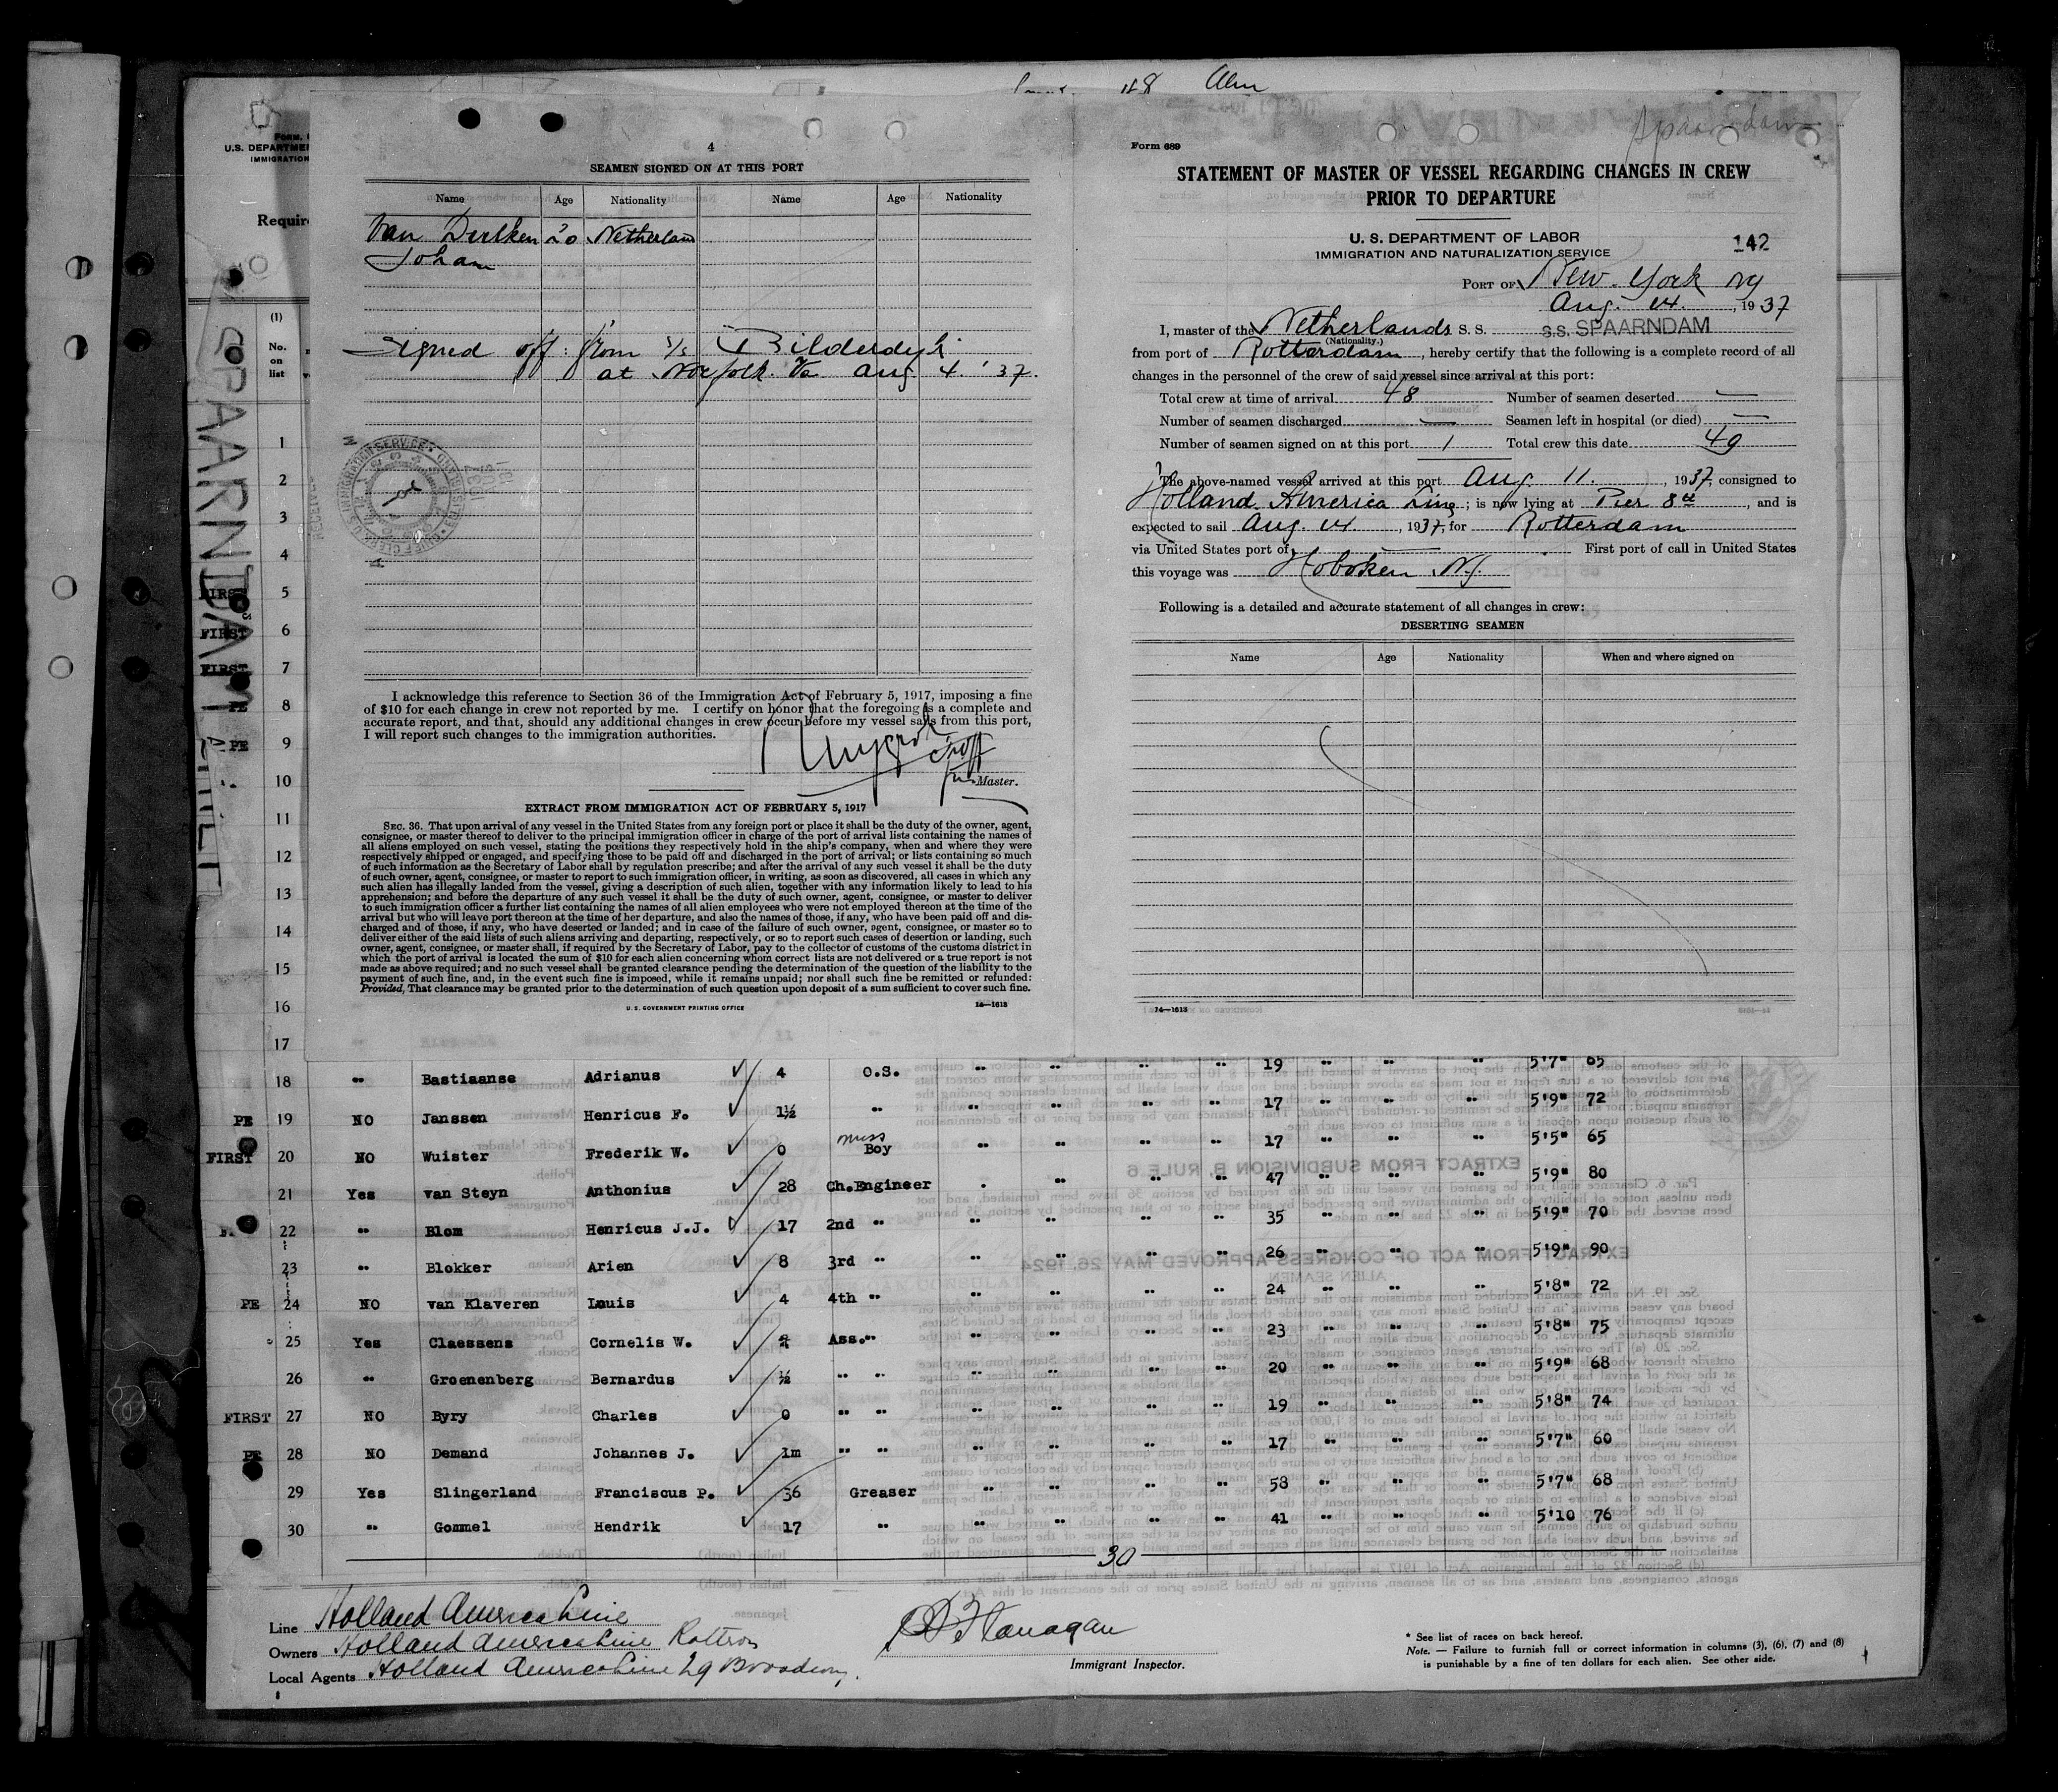 48
Form 689
Spaarndam
4
SEAMEN SIGNED ON AT THIS PORT
Name Age Nationality Name Age Nationality
Van 20 Netherland
Johan
Signed off from s/s Bilderdyk
at Norfolk Va Aug 4. '37.
I acknowledge this reference to Section 36 of the Immigration Act of February 5, 1917, imposing a fine
of $10 for each change in crew not reported by me. I certify on honor that the foregoing is a complete and
accurate report, and that, should any additional changes in crew occur before my vessel sails from this port,
I will report such changes to the immigration authorities.
Master.
EXTRACT FROM IMMIGRATION ACT OF FEBRUARY 5, 1917
SEC. 36. That upon arrival of any vessel in the United States from any foreign port or place it shall be the duty of the owner, agent,
consignee, or master thereof to deliver to the principal immigration officer in charge of the port of arrival lists containing the names of
all aliens employed on such vessel, stating the positions they respectively hold in the ship's company, when and where they were
respectively shipped or engaged, and specifying those to be paid off and discharged in the port of arrival; or lists containing so much
of such information as the Secretary of Labor shall by regulation prescribe; and after the arrival of any such vessel it shall be the duty
of such owner, agent, consignee, or master to report to such immigration officer, in writing, as soon as discovered, all cases in which any
such alien has illegally landed from the vessel, giving a description of such alien, together with any information likely to lead to his
apprehension; and before the departure of any such vessel it shall be the duty of such owner, agent, consignee, or master to deliver
to such immigration officer a further list containing the names of all alien employees who were not employed thereon at the time of the
arrival but who will leave port thereon at the time of her departure, and also the names of those, if any, who have been paid off and dis-
charged and of those, if any, who have deserted or landed; and in case of the failure of such owner, agent, consignee, or master so to
deliver either of the said lists of such aliens arriving and departing, respectively, or so to report such cases of desertion or landing, such
owner, agent, consignee, or master shall, if required by the Secretary of Labor, pay to the collector of customs of the customs district in
which the port of arrival is located the sum of $10 for each alien concerning whom correct lists are not delivered or a true report is not
made as above required; and no such vessel shall be granted clearance pending the determination of the question of the liability to the
payment of such fine, and, in the event such fine is imposed, while it remains unpaid; nor shall such fine be remitted or refunded:
Provided, That clearance may be granted prior to the determination of such question upon deposit of a sum sufficient to cover such fine.
U. S. GOVERNMENT PRINTING OFFICE 14—1613
STATEMENT OF MASTER OF VESSEL REGARDING CHANGES IN CREW
PRIOR TO DEPARTURE
U. S. DEPARTMENT OF LABOR
IMMIGRATION AND NATURALIZATION SERVICE
142
PORT OF New York NY
Aug. 14. , 1937
I, master of the Netherlands S. S. S.S. SPAARNDAM
(Nationality.)
from port of Rotterdam , hereby certify that the following is a complete record of all
changes in the personnel of the crew of said vessel since arrival at this port:
Total crew at time of arrival 48 Number of seamen deserted —
Number of seamen discharged — Seamen left in hospital (or died) —
Number of seamen signed on at this port 1 Total crew this date 49
The above-named vessel arrived at this port Aug 11. , 1937, consigned to
Holland America Line ; is now lying at Pier 8th , and is
expected to sail Aug. 14 , 1937, for Rotterdam
via United States port of — First port of call in United States
this voyage was Hoboken NJ.
Following is a detailed and accurate statement of all changes in crew:
DESERTING SEAMEN
Name Age Nationality When and where signed on
14—1613
U. S. DEPARTMEN
IMMIGRATION
Requir
(1)
No.
on
list
SPAARNDAM
1
2
3
4
FIRST 5
FIRST 6
FIRST 7
PE 8
PE 9
10
11
12
13
14
15
16
17 19 " " " 5'7" 65
18 " Bastiaanse Adrianus 4 O.S. " " " "
PE 19 NO Janssen Henricus F. 1½ " " " " " 17 " " " 5'9" 72
FIRST 20 NO Wuister Frederik W. 0 mess Boy " " " 17 " " " 5'5" 65
21 Yes van Steyn Anthonius 28 Ch.Engineer " " " 47 " " " 5'9" 80
22 " Blom Henricus J.J. 17 2nd " " " " " 35 " " " 5'9" 70
23 " Blokker Arien 8 3rd " " " " " 26 " " " 5'9" 90
PE 24 NO van Klaveren Louis 4 4th " " " " " 24 " " " 5'8" 72
25 Yes Claessens Cornelis W. Ass. " " " " " 23 " " " 5'8" 75
26 " Groenenberg Bernardus ½ " " " " " " 20 " " " 5'9" 68
FIRST 27 NO Byry Charles 0 " " " " " " 19 " " " 5'8" 74
PE 28 NO Demand Johannes J. 1m " " " " " " 17 " " " 5'7" 60
29 Yes Slingerland Franciscus P. 36 Greaser " " " " 58 " " " 5'7" 68
30 " Gommel Hendrik 17 " " " " " 41 " " " 5'10 76
30
Line Holland America Line
Owners Holland America Line
Local Agents Holland America Line 29 Broadway.
Flanagan
Immigrant Inspector.
* See list of races on back hereof.
Note. — Failure to furnish full or correct information in columns (3), (6), (7) and (8)
is punishable by a fine of ten dollars for each alien. See other side.